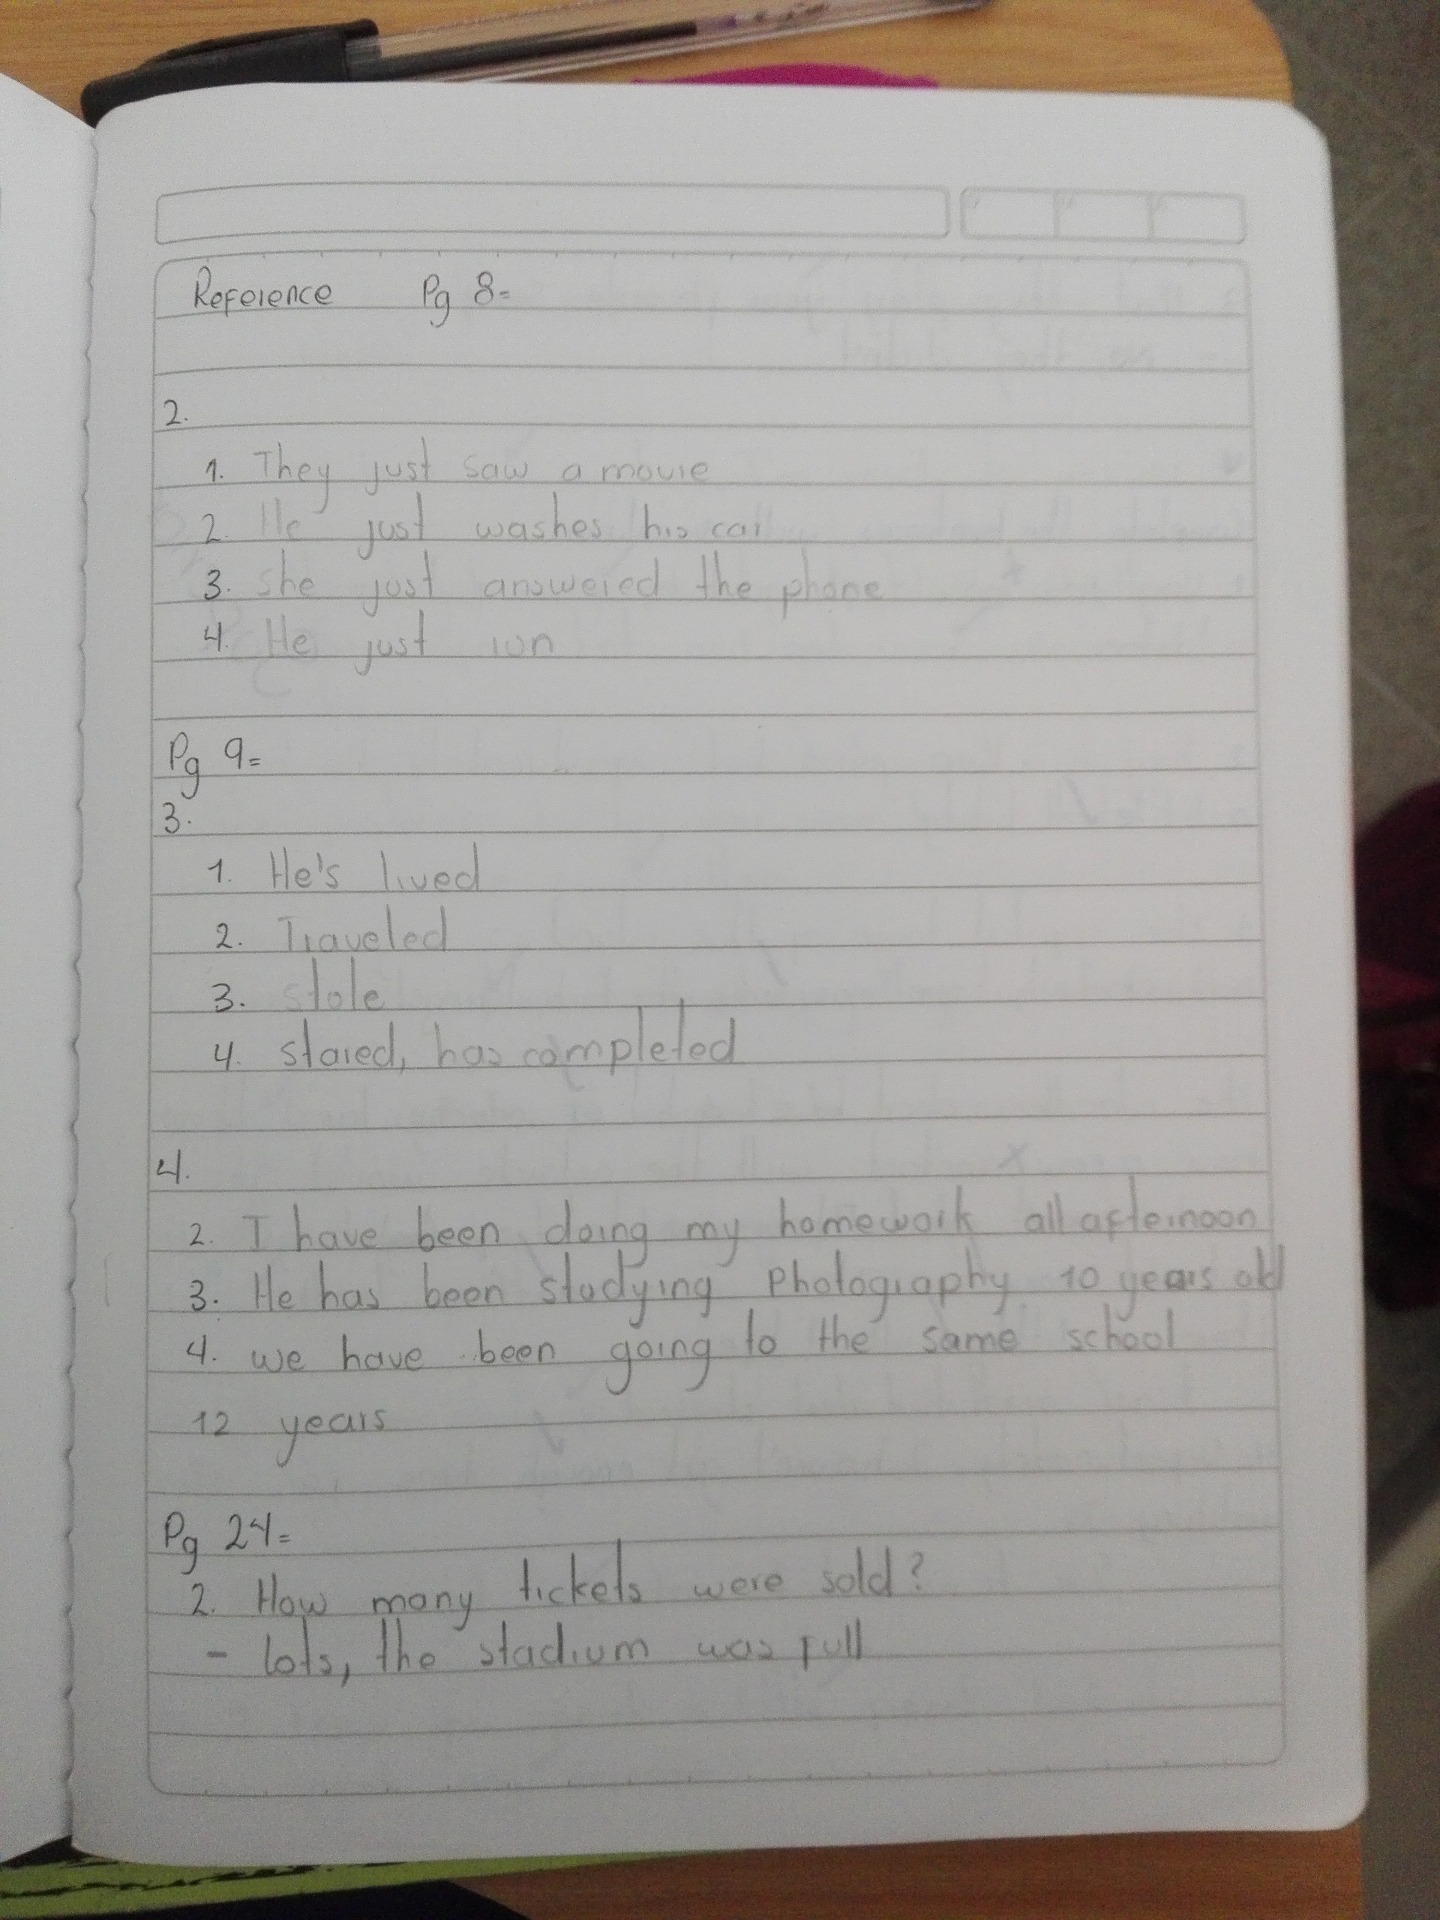 Reference Pg 8=
2.
1. They just saw a movie
2. He just washes his car
3. She just answered the phone
4. He just run
Pg 9=
3.
1. He's lived
2. Traveled
3. stole
4. stared, has completed
4.
2. I have been doing my homework all afternoon
3. He has been studying Photography 10 years old
4. we have been going to the same school
12 years
Pg 24=
2. How many tickets were sold?
- lots, the stadium was full